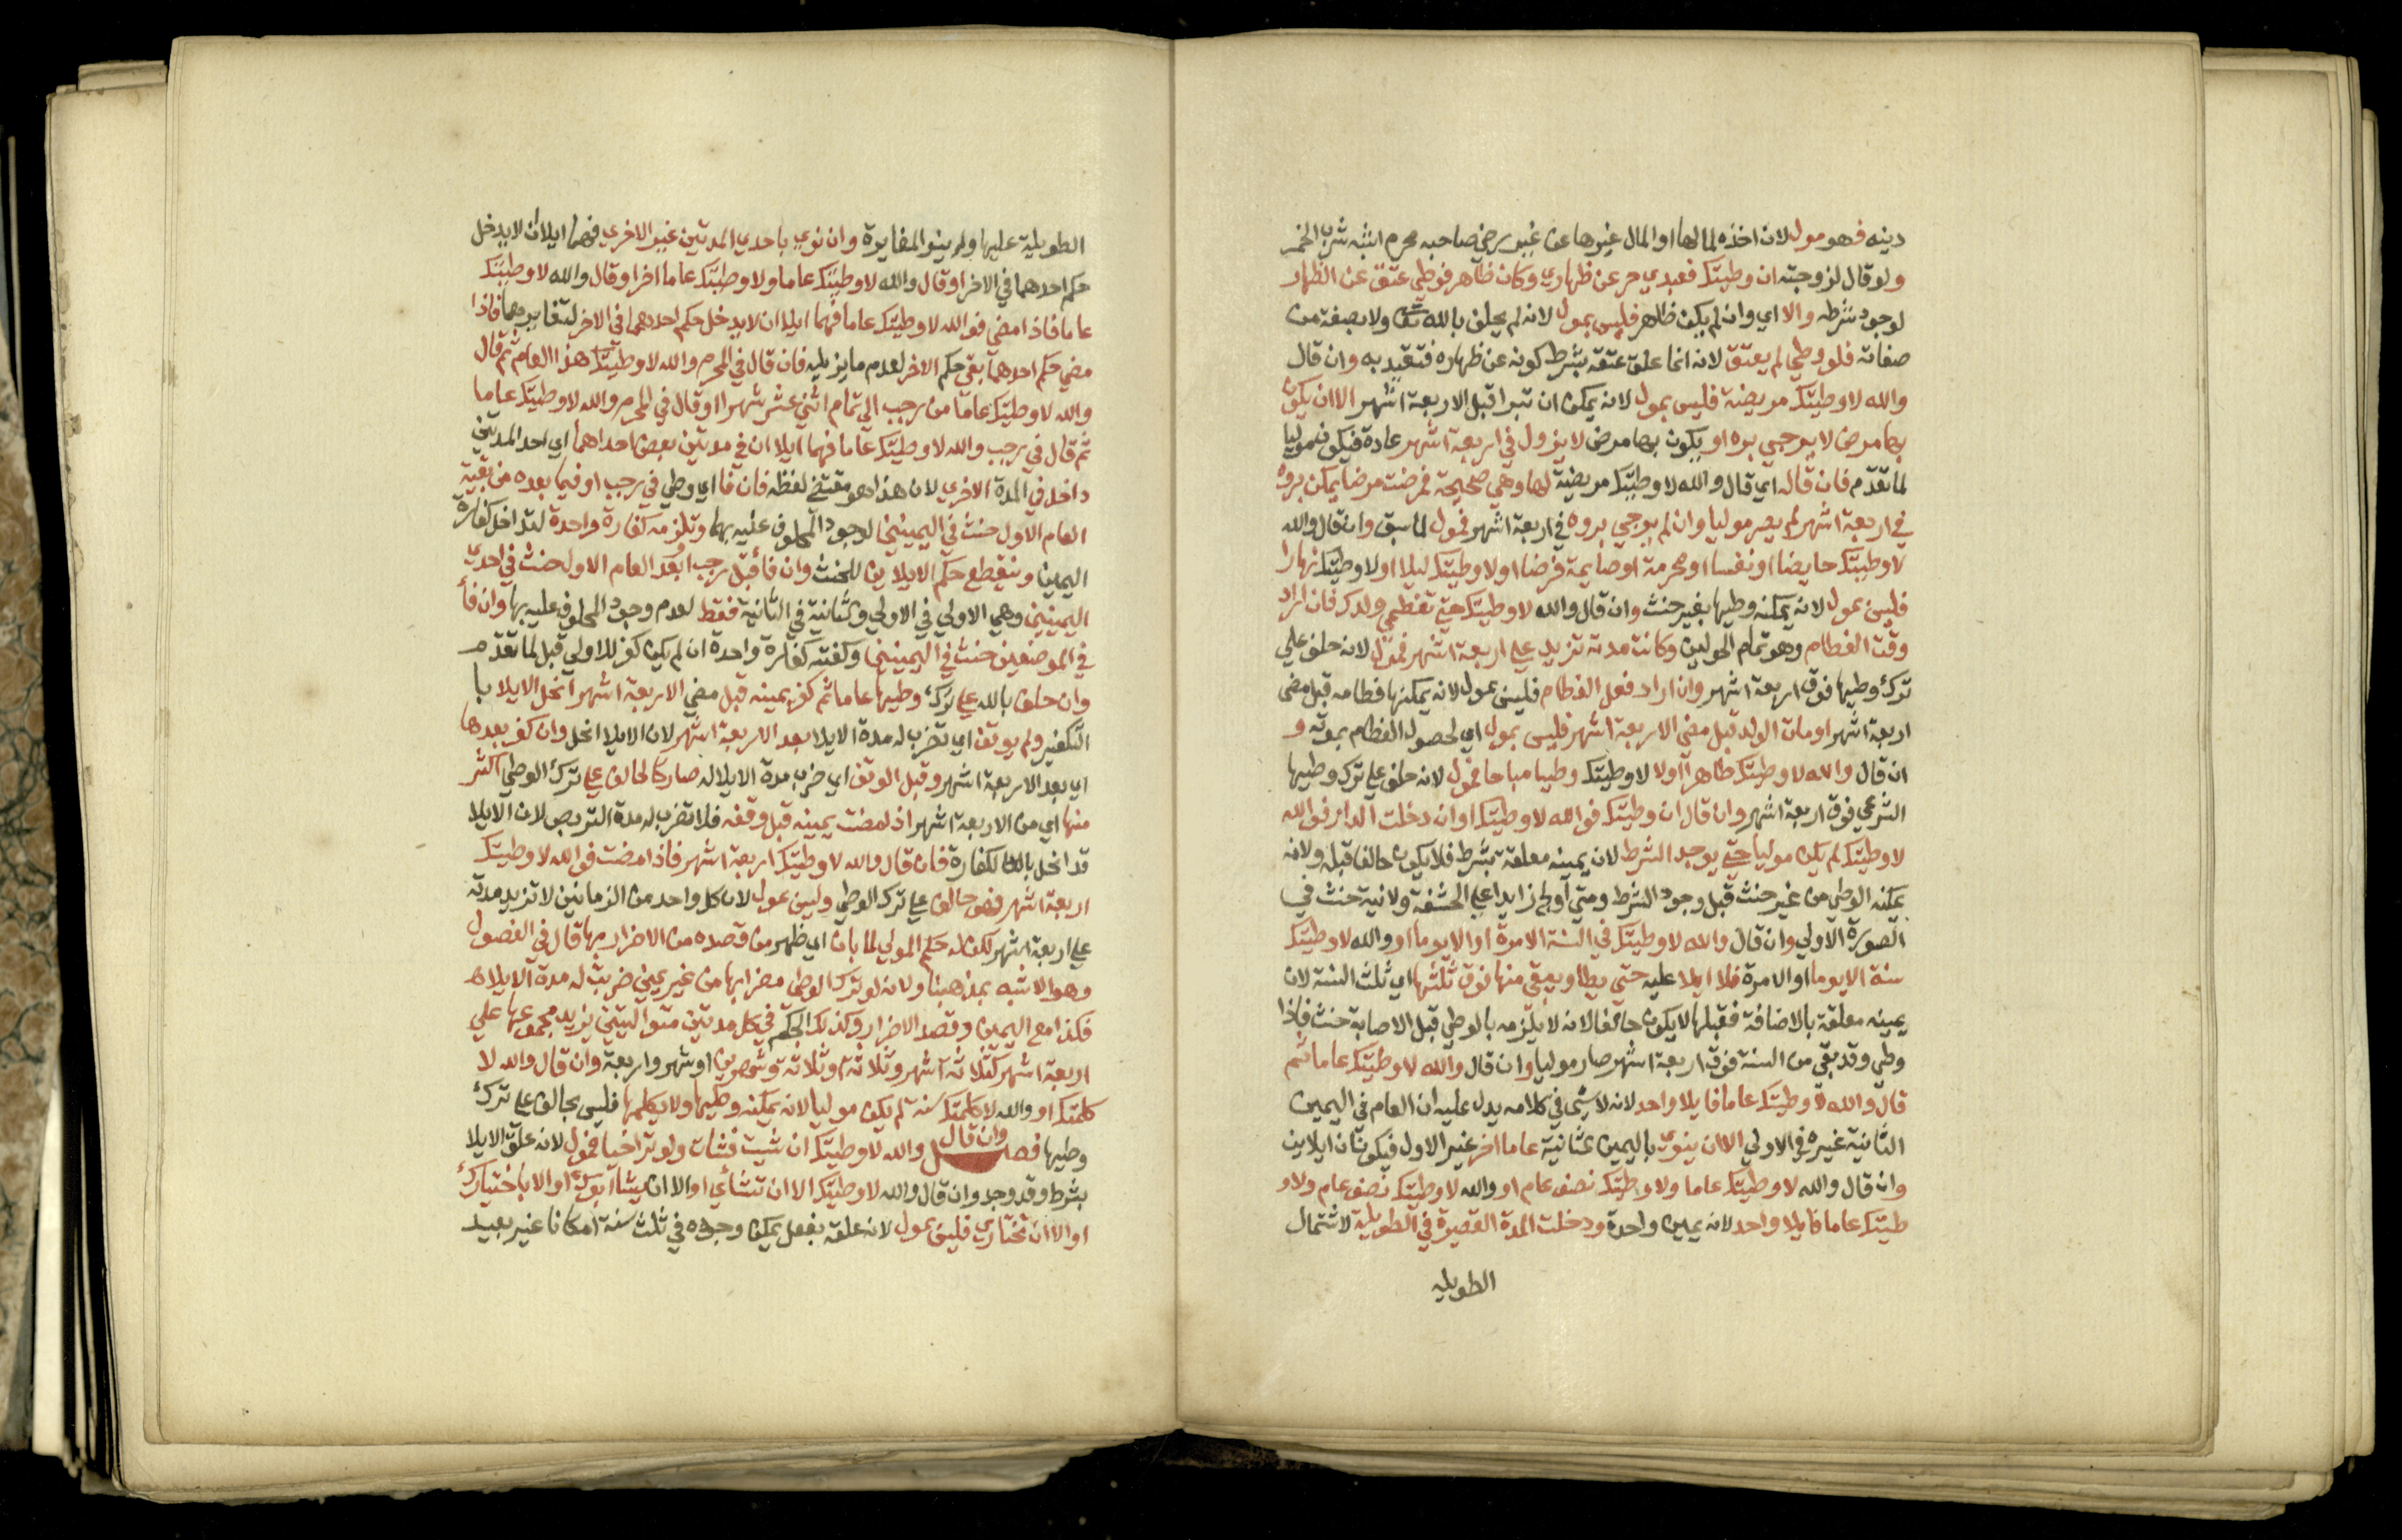 دينه فهو مول لان اخذه لمالها او المال غيرها عن غير رضي صاحبه محرم اشبه شرب الخمر
ولو قال لزوجته ان وطيتك فعبدي حر عن ظهاري وكان ظاهر فوطي عتق عن الظهار
لوجود شرطه والا اي وان لم يكن ظاهر فليس بمول لانه لم يحلف بالله تعالى ولا بصفة من
صفاته فلو وطي لم يعتق لانه انما علق عتقه بشرط كونه عن ظهاره فتقيد به وان قال
والله لا وطيتك مريضة فليس بمول لانه يمكن ان تبرا قبل الاربعة اشهر الا ان يكون
بها مرض لا يرجي بره او يكون بها مرض لا يزول في اربعة اشهر عادة فيكون موليا
لما تقدم فان قاله اي قال والله لا وطيتك مريضة لها وهي صحيحة فمرضت مرضا يمكن بروه
في اربعة اشهر لم يصر موليا وان لم يرجي بروه في اربعة اشهر فمول لما سبق وان قال والله
لا وطيتك حايضا او نفسا او محرمة او صايمة فرضا او لا وطيتك ليلا او لا وطيتك نهارا
فليس بمول لانه يمكنه وطيها بغير حنث وان قال والله لا وطيتك حتي تفطمي ولدك فان اراد
وقت الفطام وهو تمام الحولين وكانت مدته تزيد علي اربعة اشهر فمول لانه حلف علي
ترك وطيها فوق اربعة اشهر وان اراد فعل الفطام فليس بمول لانه يمكنها فطامه قبل مضي
اربعة اشهر او مات الولد قبل مضي الاربعة اشهر فليس بمول اي لحصول الفطام بموته و
ان قال والله لا وطيتك طاهرا او لا لا وطيتك وطيا مباحا فمول لانه حلف علي ترك وطيها
الشرعي فوق اربعة اشهر وان قال ان وطيتك فوالله لا وطيتك او ان دخلت الدار فوالله
لا وطيتك لم يكن موليا حتي يوجد الشرط لان يمينه معلقة بشرط فلا يكون حالفا قبله ولانه
يمكنه الوطي من غير حنث قبل وجود الشرط ومتي اولج زايدا علي الحشفة ولا نية حنث في
الصورة الاولي وان قال والله لا وطيتك في السنة الا مرة او الا يوما او والله لا وطيتك
سنة الا يوما او الا مرة فلا ايلا عليه حتي يطا ويبقي منها فوق ثلثها اي ثلث السنة لان
يمينه معلقة بالاضافة فقبلها لا يكون حالفا لانه لا يلزمه بالوطي قبل الاصابة حنث فاذا
وطي وقد بقي من السنة فوق اربعة اشهر صار موليا وان قال والله لا وطيتك عاما ثم
قال والله لا وطيتك عاما فايلا واحد لانه لا شي في كلامه يدل عليه ان العام في اليمين
الثانية غيره في الاولي الا ان ينوي باليمين الثانية عاما اخر غير الاول فيكونان ايلاين
وان قال والله لا وطيتك عاما ولا وطيتك نصف عام او والله لا وطيتك نصف عام ولا و
طيتك عاما فايلا واحد لانه يمين واحدة ودخلت المدة القصيرة في الطويلة لاشتمال
الطويلة
الطويلة عليها ولم ينو المغايرة وان نوي باحدي المدتين غير الاخري فهما ايلاان لا يدخل
حكم احدهما في الاخر او قال والله لا وطيتك عاما ولا وطيتك عاما اخر او قال والله لا وطيتك
عاما فاذا مضي فوالله لا وطيتك عاما فهما ايلاان لا يدخل حكم احدهما في الاخر لتغايرهما فاذا
مضي حكم احدهما بقي حكم الاخر لعدم ما يزيله فان قال في المحرم والله لا وطيتك هذا العام ثم قال
والله لا وطيتك عاما من رجب الي تمام اثني عشر شهرا او قال في المحرم والله لا وطيتك عاما
ثم قال في رجب والله لا وطيتك عاما فهما ايلاان في مدتين بعض احداهما اي احد المدتين
داخل في المدة الاخري لان هذا هو مقتضي لفظه فان فا اي وطي في رجب او فيما بعده من بقية
العام الاول حنث في اليمينين لوجود المحلوف عليه بهما وتلزمه كفارة واحدة لتداخل كفارة
اليمين وينقطع حكم الايلاين للحنث وان فا قبل رجب او بعد العام الاول حنث في احدي
اليمينين وهي الاولي في الاولي والثانية في الثانية فقط لعدم وجود المحلوف عليه بها وان فا
في الموضعين حنث في اليمينين وكفته كفارة واحدة ان لم يكن كفر للاولي قبل لما تقدم
وان حلف بالله علي ترك وطيها عاما ثم كفر يمينه قبل مضي الاربعة اشهر انحل الايلا با
التكفير ولم يوقف اي تضرب له مدة الايلا بعد الاربعة اشهر لان الايلا انحل وان كفر بعدها
اي بعد الاربعة اشهر وقبل الوقف اي ضرب مدة الايلا له صار كالحالف علي ترك الوطي اكثر
منها اي من الاربعة اشهر اذ لمضت يمينه قبل وقفه فلا تضرب له مدة التربص لان الايلا
قد انحل بالكفارة فان قال والله لا وطيتك اربعة اشهر فاذا مضت فوالله لا وطيتك
اربعة اشهر فهو حالف علي ترك الوطي وليس بمول لان كل واحد من الزمانين لا تزيد مدته
علي اربعة اشهر لكن له حكم المولي لما بان اي ظهر من قصده من الاضرار بها قال في الفصول
وهو الاشبه بمذهبنا ولانه لو ترك الوطي مضرا بها من غير يمين ضربت له مدة الايلا
فكذا مع اليمين وقصد الاضرار وكذلك الحكم في كل مدتين متواليتين يزيد مجموعهما علي
اربعة اشهر كثلاثة اشهر وثلاثة او ثلاثة وشهرين او شهر واربعة وان قال والله لا
كلمتك او والله لا كلمتك سنة لم يكن موليا لانه يمكنه وطيها ولا يكلمها فليس بحالف علي ترك
وطيها فصل وان قال والله لا وطيتك ان شيت فشات ولو تراخيا فمول لانه علق الايلا
بشرط وقد وجد وان قال والله لا وطيتك الا ان تشائي او الا ان يشا ابوك او الا باختيارك
او الا ان تختاري فليس بمول لانه علقه بفعل يمكن وجوده في ثلث سنة امكانا غير بعيد